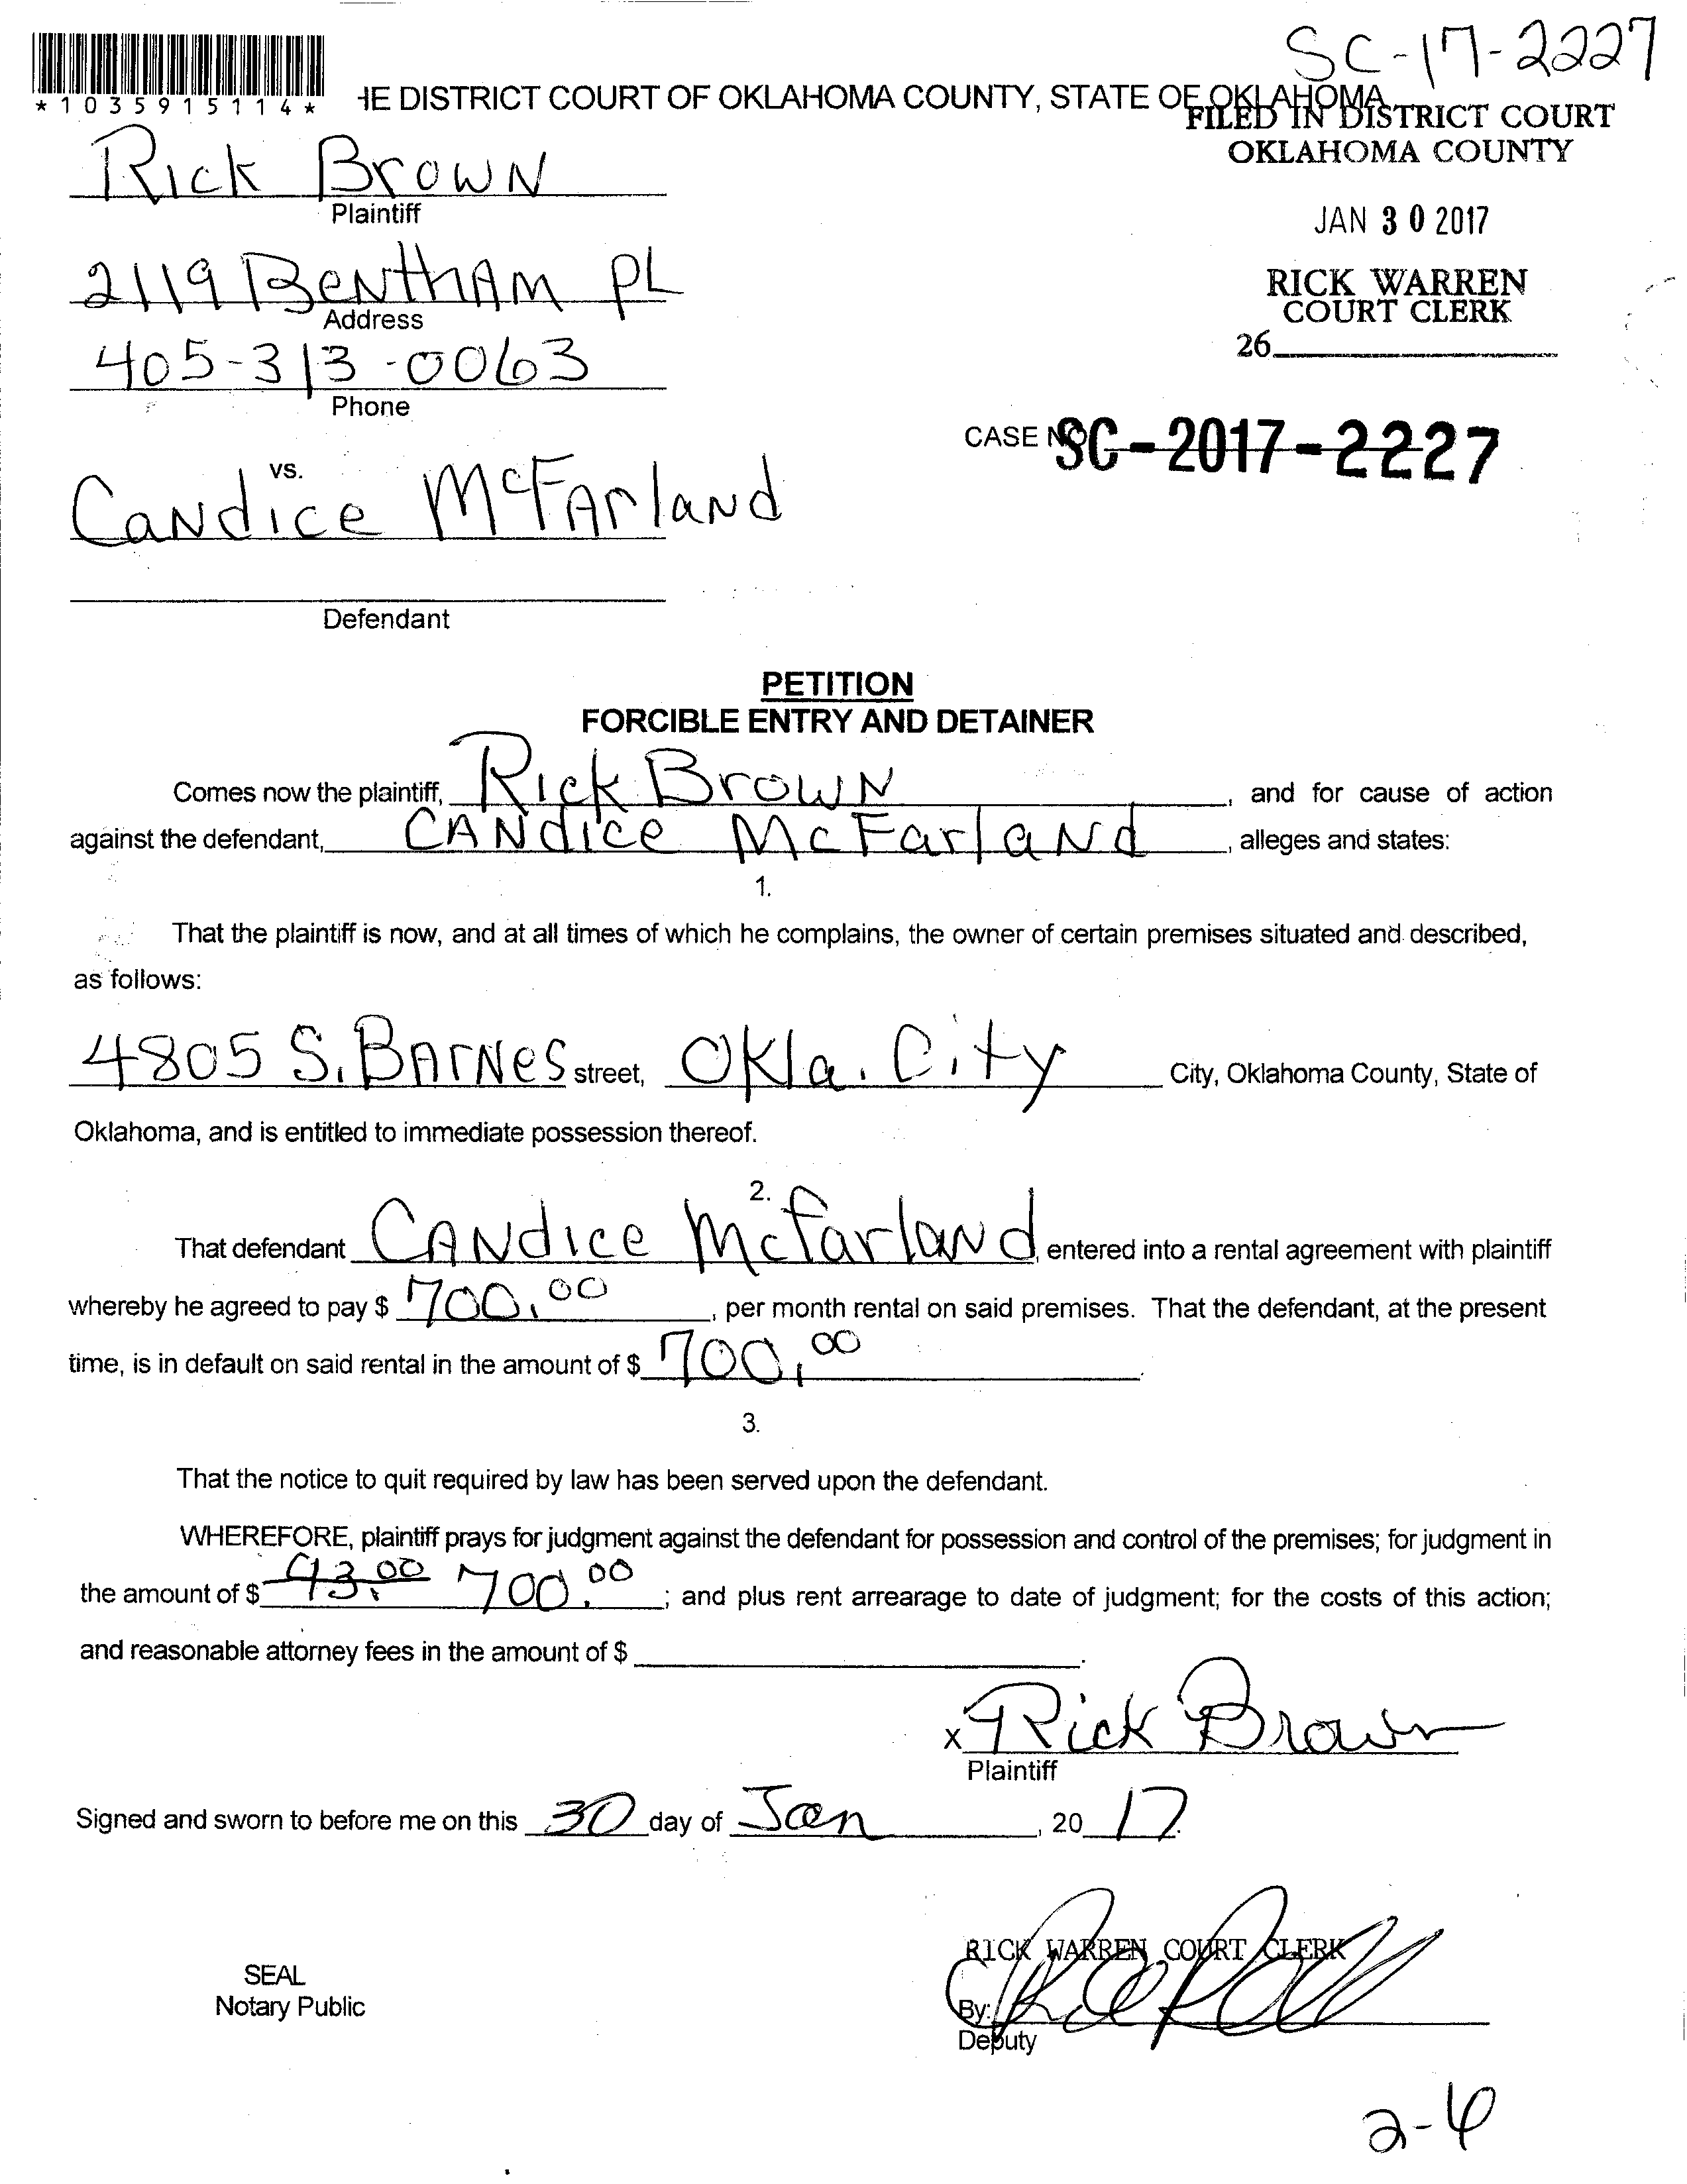 SC-17-2227
*1035915114*
HE DISTRICT COURT OF OKLAHOMA COUNTY, STATE OF OKLAHOMA
FILED IN DISTRICT COURT
OKLAHOMA COUNTY
Rick Brown
Plaintiff
JAN 30 2017
2119 Bentham PL
Address
RICK WARREN
COURT CLERK
26
405-313-0063
Phone
CASE NO. SC-2017-2227
vs.
Candice McFarland
Defendant
PETITION
FORCIBLE ENTRY AND DETAINER
Comes now the plaintiff, Rick Brown, and for cause of action
against the defendant, Candice McFarland, alleges and states:
1.
That the plaintiff is now, and at all times of which he complains, the owner of certain premises situated and described,
as follows:
4805 S. Barnes street, Okla. City City, Oklahoma County, State of
Oklahoma, and is entitled to immediate possession thereof.
2.
That defendant Candice McFarland, entered into a rental agreement with plaintiff
whereby he agreed to pay $ 700.00, per month rental on said premises. That the defendant, at the present
time, is in default on said rental in the amount of $ 700.00.
3.
That the notice to quit required by law has been served upon the defendant.
WHEREFORE, plaintiff prays for judgment against the defendant for possession and control of the premises; for judgment in
the amount of $ 43.00 700.00; and plus rent arrearage to date of judgment; for the costs of this action;
and reasonable attorney fees in the amount of $ .
x Rick Brown
Plaintiff
Signed and sworn to before me on this 30 day of Jan, 20 17.
RICK WARREN COURT CLERK
SEAL
Notary Public
By:
Deputy